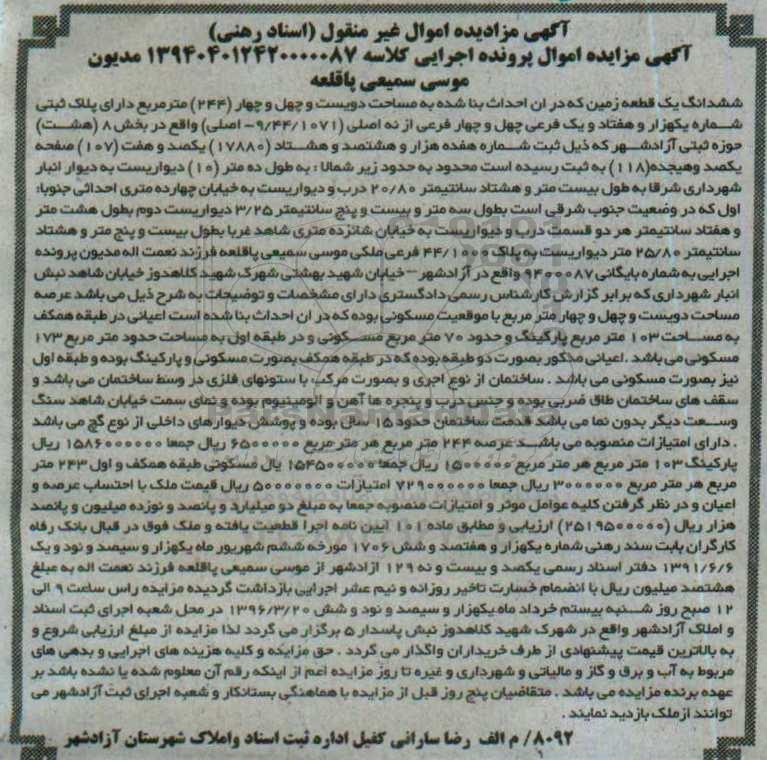 آگهی مزادیده اموال غیر منقول (اسناد رهنی)
آگهی مزایده اموال پرونده اجرایی کلاسه ۱۳۹۴۰۴۰۱۲۴۲۰۰۰۰۰۸۷ مدیون
موسی سمیعی پاقلعه
ششدانگ یک قطعه زمین که در ان احداث بنا شده به مساحت دویست و چهل و چهار (۲۴۴) مترمربع دارای پلاک ثبتی
شماره یکهزار و هفتاد و یک فرعی چهل و چهار فرعی از نه اصلی (۹/۴۴/۱۰۷۱- اصلی) واقع در بخش ۸ (هشت)
حوزه ثبتی آزادشهر که ذیل ثبت شماره هفده هزار و هشتصد و هشتاد (۱۷۸۸۰) یکصد و هفت (۱۰۷) صفحه
یکصد وهیجده(۱۱۸) به ثبت رسیده است محدود به حدود زیر شمالا : به طول ده متر (۱۰) دیواریست به دیوار انبار
شهرداری شرقا به طول بیست متر و هشتاد سانتیمتر ۲۰/۸۰ درب و دیواریست به خیابان چهارده متری احداثی جنوبا:
اول که در وضعیت جنوب شرقی است بطول سه متر و بیست و پنج سانتیمتر ۳/۲۵ دیواریست دوم بطول هشت متر
و هفتاد سانتیمتر هر دو قسمت درب و دیواریست به خیابان شانزده متری شاهد غربا بطول بیست و پنج متر و هشتاد
سانتیمتر ۲۵/۸۰ متر دیواریست به پلاک فرعی ملکی موسی سمیعی پاقلعه فرزند نعمت اله مدیون پرونده
اجرایی به شماره بایگانی ۹۴۰۰۰۸۷ واقع در آزادشهر – خیابان شهید بهشتی شهرک شهید کلاهدوز خیابان شاهد نبش
انبار شهرداری که برابر گزارش کارشناس رسمی دادگستری دارای مشخصات و توضیحات به شرح ذیل می باشد عرصه
مساحت دویست و چهل و چهار متر مربع با موقعیت مسکونی بوده که در ان احداث بنا شده است اعیانی در طبقه همکف
به مساحت ۱۰۳ متر مربع پارکینگ و حدود ۷۰ متر مربع مسکونی و در طبقه اول به مساحت حدود متر مربع ۱۷۳
مسکونی می باشد . اعیانی مذکور بصورت دو طبقه بوده که در طبقه همکف بصورت مسکونی و پارکینگ بوده و طبقه اول
نیز بصورت مسکونی می باشد . ساختمان از نوع اجری و بصورت مرکب با ستونهای فلزی در وسط ساختمان می باشد و
سقف های ساختمان طاق ضربی بوده و جنس درب و پنجره ها آهن و الومینیوم بوده و نمای سمت خیابان شاهد سنگ
وسعت دیگر بدون نما می باشد قدمت ساختمان حدود ۱۵ سال بوده و پوشش دیوارهای داخلی از نوع گچ می باشد
. دارای امتیازات منصوبه می باشد عرصه ۲۴۴ متر مربع هر متر مربع ۶۵۰۰۰۰۰ ریال جمعا ۱۵۸۶۰۰۰۰۰۰ ریال
پارکینگ ۱۰۳ متر مربع هر متر مربع ۱۵۰۰۰۰۰ ریال جمعا ۱۵۴۵۰۰۰۰۰ یال مسکونی طبقه همکف و اول ۲۴۳ متر
مربع هر متر مربع ۳۰۰۰۰۰۰ ریال جمعا ۷۲۹۰۰۰۰۰۰ امتیازات ۵۰۰۰۰۰۰۰ ریال قیمت ملک با احتساب عرصه و
اعیان و در نظر گرفتن کلیه عوامل موثر و امتیازات منصوبه جمعا به مبلغ دو میلیارد و پانصد و نوزده میلیون و پانصد
هزار ریال (۲۵۱۹۵۰۰۰۰۰) ارزیابی و مطابق ماده ۱۰۱ آیین نامه اجرا قطعیت یافته و ملک فوق در قبال بانک رفاه
کارگران بابت سند رهنی شماره یکهزار و هفتصد و شش ۱۷۰۶ مورخه ششم شهریور ماه یکهزار و سیصد و نود و یک
۱۳۹۱/۶/۶ دفتر اسناد رسمی یکصد و بیست و نه ۱۲۹ ازادشهر از موسی سمیعی پاقلعه فرزند نعمت اله به مبلغ
هشتصد میلیون ریال با انضمام خسارت تاخیر روزانه و نیم عشر اجرایی بازداشت گردیده مزایده راس ساعت ۹ الی
۱۲ صبح روز شنبه بیستم خرداد ماه یکهزار و سیصد و نود و شش ۱۳۹۶/۳/۲۰ در محل شعبه اجرای ثبت اسناد
و املاک آزادشهر واقع در شهرک شهید کلاهدوز نبش پاسدار ۵ برگزار می گردد لذا مزایده از مبلغ ارزیابی شروع و
به بالاترین قیمت پیشنهادی از طرف خریداران واگذار می گردد . حق مزایده و کلیه هزینه های اجرایی و بدهی های
مربوط به آب و برق و گاز و مالیاتی و شهرداری و غیره تا روز مزایده اعم از اینکه رقم آن معلوم شده یا نشده باشد بر
عهده برنده مزایده می باشد . متقاضیان پنج روز قبل از مزایده با هماهنگی بستانکار و شعبه اجرای ثبت آزادشهر می
توانند از ملک بازدید نمایند .
۸۰۹۲/ م الف رضا سارانی کفیل اداره ثبت اسناد واملاک شهرستان آزادشهر